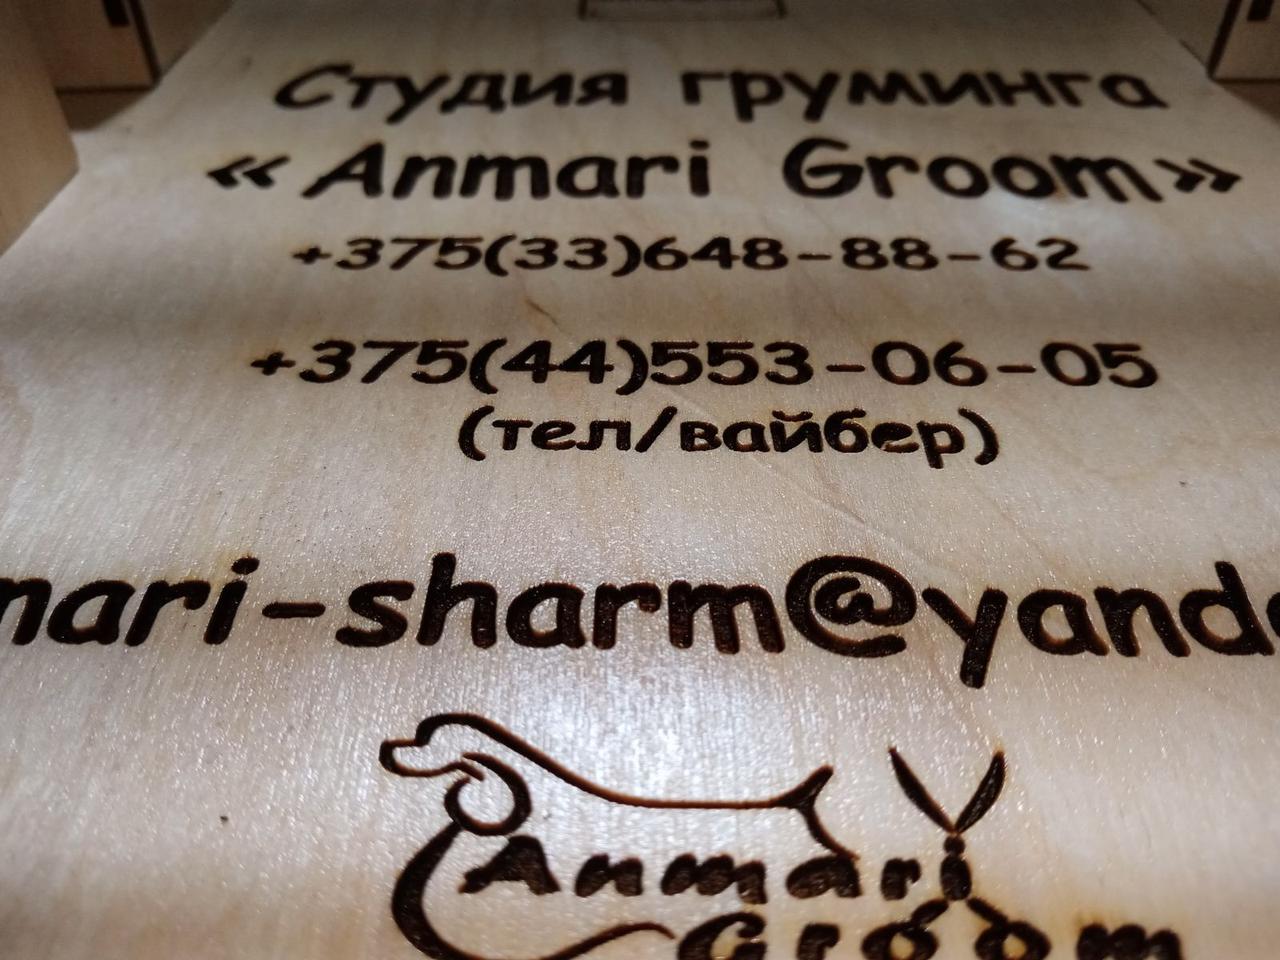 Студия груминга
«Anmari Groom»
+375(33)648-88-62
+375(44)553-06-05
(тел/вайбер)
mari-sharm@yande
Anmari
Groom